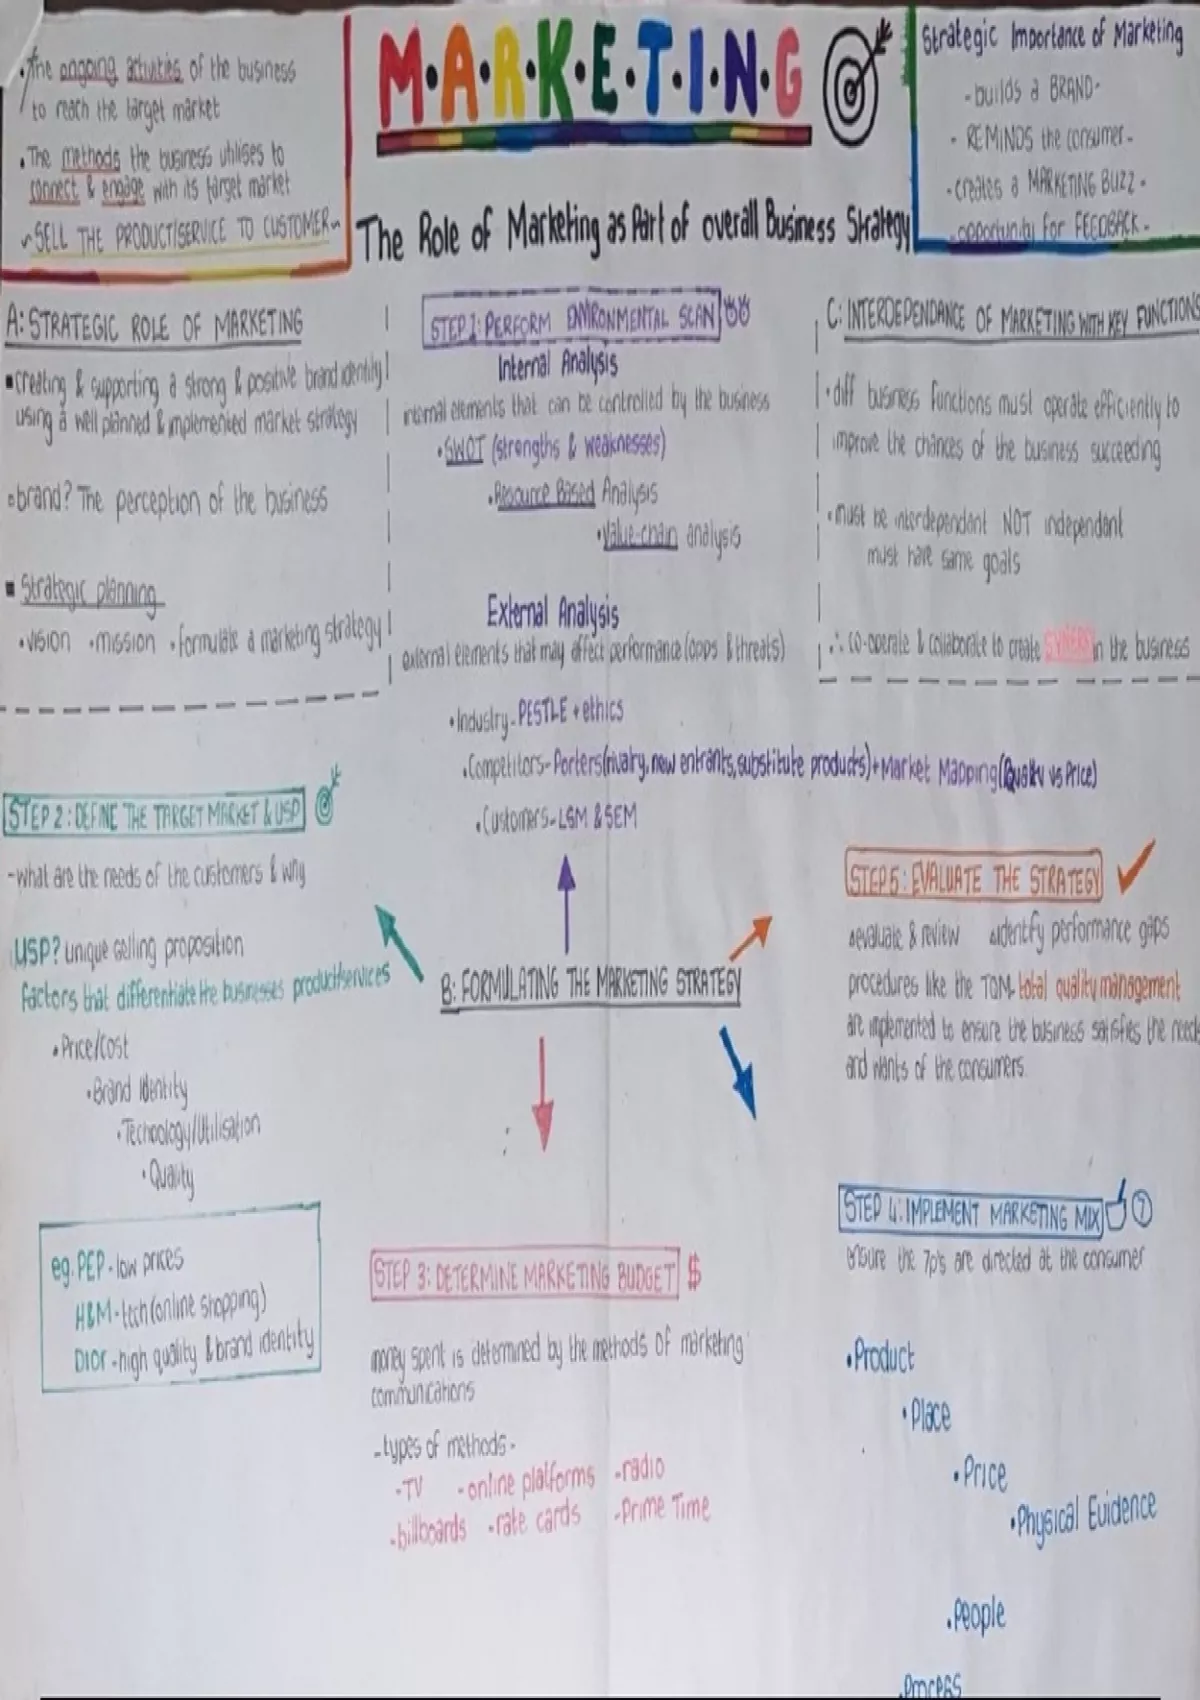 M.A.R.K.E.T.I.N.G
• The ongoing activities of the business
to reach the target market
• The methods the business utilises to
connect & engage with its target market
~ SELL THE PRODUCT/SERVICE TO CUSTOMER ~
Strategic Importance of Marketing
- builds a BRAND -
- REMINDS the consumer -
- creates a MARKETING BUZZ -
- opportunity for FEEDBACK -
The Role of Marketing as Part of overall Business Strategy
A: STRATEGIC ROLE OF MARKETING
▪ creating & supporting a strong & positive brand identity
using a well planned & implemented market strategy
▫ brand? The perception of the business
▪ Strategic planning
• vision • mission • formulate a marketing strategy
STEP 1: PERFORM ENVIRONMENTAL SCAN
Internal Analysis
internal elements that can be controlled by the business
• SWOT (strengths & weaknesses)
• Resource Based Analysis
• Value-chain analysis
External Analysis
external elements that may affect performance (opps & threats)
• Industry - PESTLE + ethics
• Competitors - Porters (rivalry, new entrants, substitute products) + Market Mapping (Quality vs Price)
• Customers - LSM & SEM
C: INTERDEPENDANCE OF MARKETING WITH KEY FUNCTIONS
• diff business functions must operate efficiently to
improve the chances of the business succeeding
• must be interdependant NOT independant
must have same goals
∴ co-operate & collaborate to create SYNERGY in the business
STEP 2: DEFINE THE TARGET MARKET & USP
- what are the needs of the customers & why
USP? unique selling proposition
factors that differentiate the businesses product/services
• Price/Cost
• Brand Identity
• Technology/Utilisation
• Quality
eg. PEP - low prices
H&M - tech (online shopping)
Dior - high quality & brand identity
B: FORMULATING THE MARKETING STRATEGY
STEP 5: EVALUATE THE STRATEGY
evaluate & review identify performance gaps
procedures like the TQM - total quality management
are implemented to ensure the business satisfies the needs
and wants of the consumers
STEP 3: DETERMINE MARKETING BUDGET $
money spent is determined by the methods of marketing
communications
- types of methods -
- TV - online platforms - radio
- billboards - rate cards - Prime Time
STEP 4: IMPLEMENT MARKETING MIX 7
ensure the 7p's are directed at the consumer
• Product
• Place
• Price
• Physical Evidence
• People
• Process